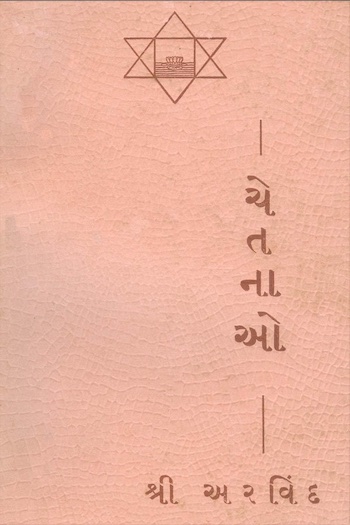 ચેતનાઓ
શ્રી અરવિંદ